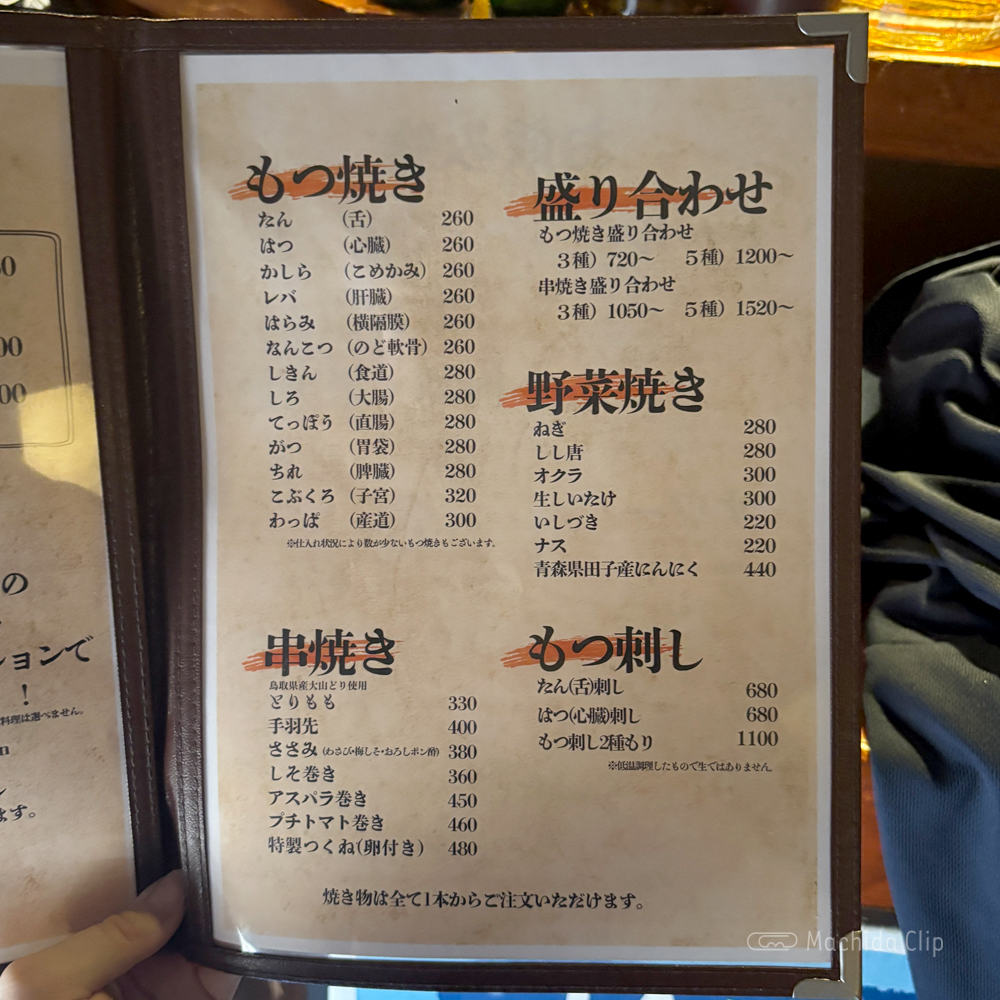 もつ焼き
たん (舌) 260
はつ (心臓) 260
かしら (こめかみ) 260
レバ (肝臓) 260
はらみ (横隔膜) 260
なんこつ (のど軟骨) 260
しきん (食道) 280
しろ (大腸) 280
てっぽう (直腸) 280
がつ (胃袋) 280
ちれ (脾臓) 280
こぶくろ (子宮) 320
わっぱ (産道) 300
※仕入れ状況により数が少ないもつ焼きもございます。
串焼き
鳥取県産大山どり使用
とりもも 330
手羽先 400
ささみ (わさび・梅しそ・おろしポン酢) 380
しそ巻き 360
アスパラ巻き 450
プチトマト巻き 460
特製つくね(卵付き) 480
盛り合わせ
もつ焼き盛り合わせ
3種) 720〜 5種) 1200〜
串焼き盛り合わせ
3種) 1050〜 5種) 1520〜
野菜焼き
ねぎ 280
しし唐 280
オクラ 300
生しいたけ 300
いしづき 220
ナス 220
青森県田子産にんにく 440
もつ刺し
たん(舌)刺し 680
はつ(心臓)刺し 680
もつ刺し2種もり 1100
※低温調理したもので生ではありません。
焼き物は全て1本からご注文いただけます。
の
ションで
！
料理は選べません。
ます。
Machida Clip